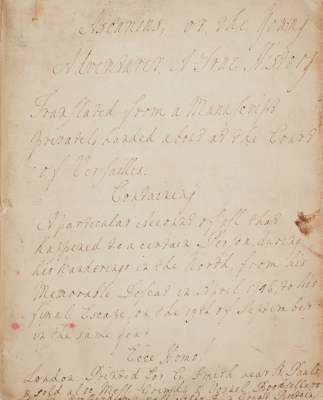 Ascanius, or, the Young
Adventurer, A True History
Translated from a Manuscript
privately handed about at the Court
of Versailles.
Containing
A particular Account of all that
happened to a certain Person, during
his Wanderings in the North, from his
Memorable Defeat in April 1746, to his
final Escape, on the 19th of September
in the same year
Ecce Homo!
London Printed for G. Smith near St Pauls
& sold also